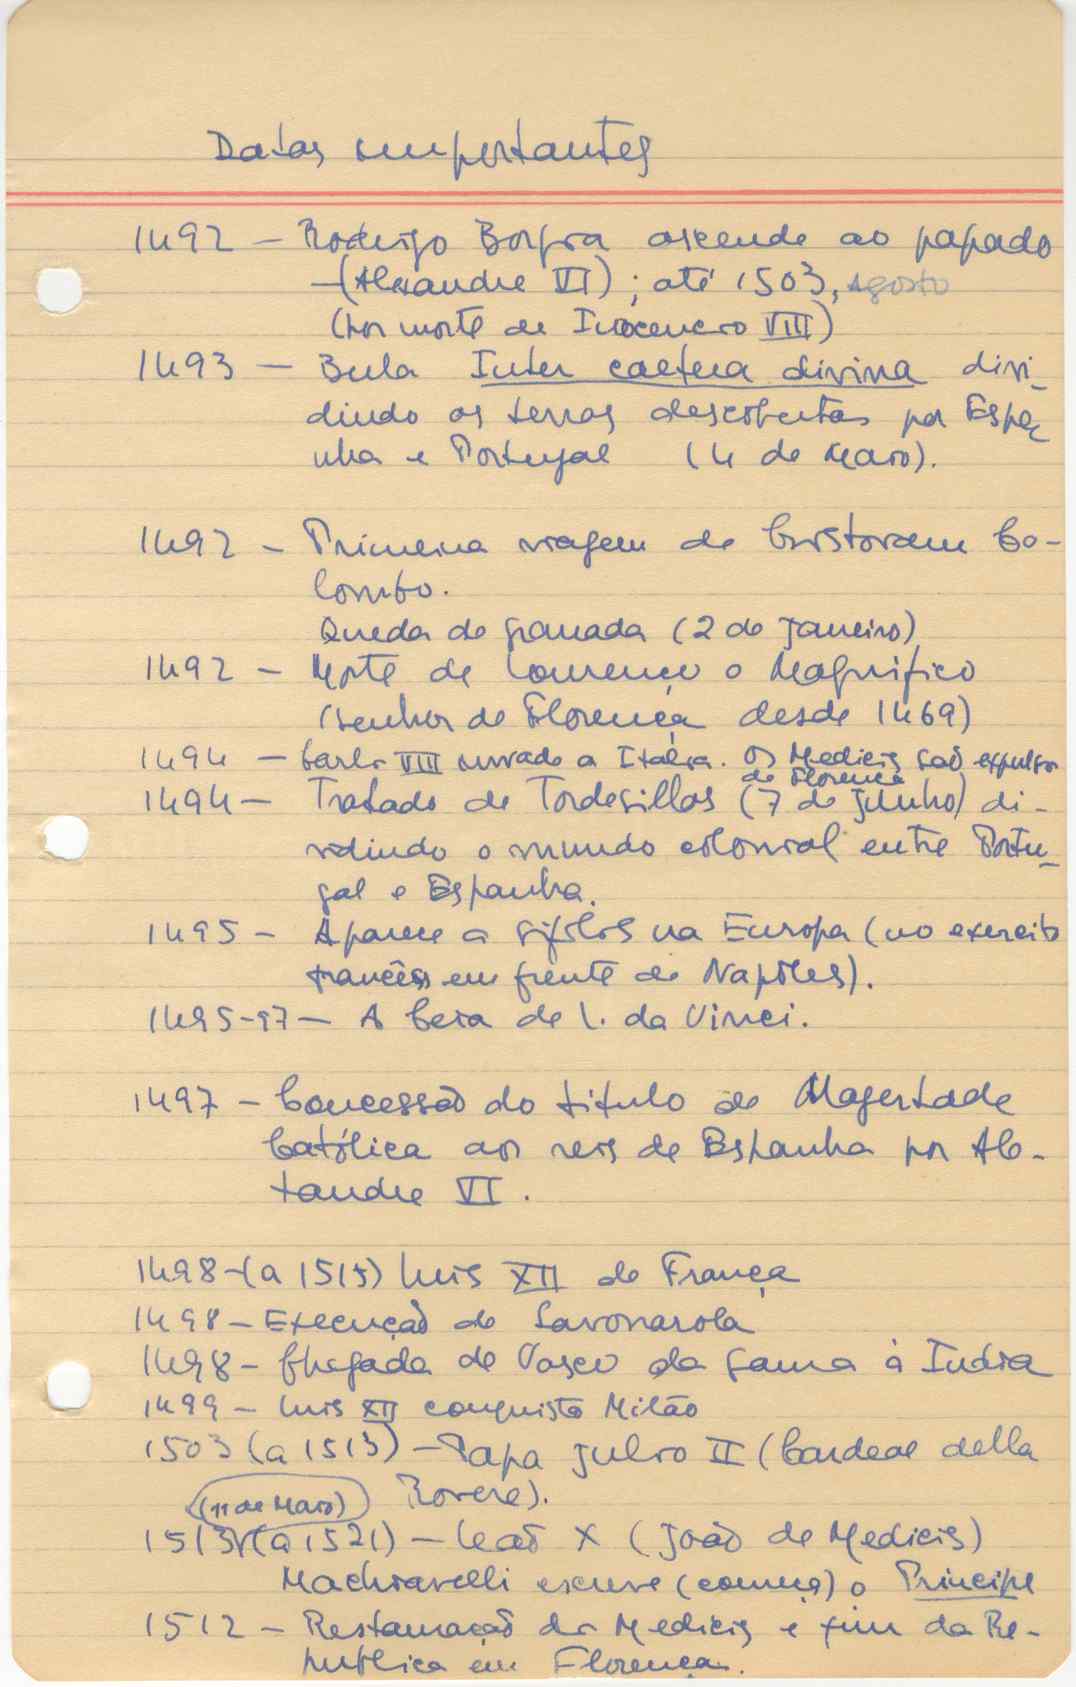 Datas importantes
1492 – Rodrigo Borgia ascende ao papado
– (Alexandre VI) ; até 1503, Agosto
(por morte de Inocencio VIII)
1493 – Bula Inter caetera divina divi-
dindo as terras descobertas por Espa-
nha e Portugal (4 de Maio).
1492 – Primeira viagem de Cristovam Co-
lombo.
Queda de Granada (2 de Janeiro)
1492 – Morte de Lourenço o Magnifico
(senhor de Florença desde 1469)
1494 – Carlos VIII invade a Itália. Os Medicis são expulsos
de Florença
1494 – Tratado de Tordesillas (7 de Junho) di-
vidindo o mundo colonial entre Portu-
gal e Espanha.
1495 – Aparece a sifilis na Europa (no exercito
francês, em frente de Napoles).
1495-97 – A Ceia de L. da Vinci.
1497 – Concessão do titulo de Magestade
Católica aos reis de Espanha por Ale-
xandre VI.
1498 – (a 1515) Luis XII de França
1498 – Execução de Savonarola
1498 – Chegada de Vasco da Gama à India
1499 – Luis XII conquista Milão
1503 (a 1513) – Papa Julio II (Cardeal della
Rovere).
(11 de Março)
1513 (a 1521) – Leão X (João de Medicis)
Machiavelli escreve (começa) o Principe
1512 – Restauração dos Medicis e fim da Re-
publica em Florença.